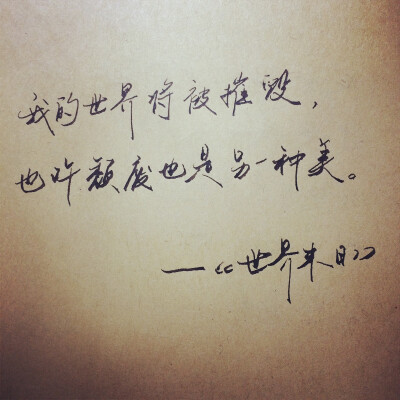 我的世界将被摧毁，
也许颓废也是另一种美。
——《世界末日》